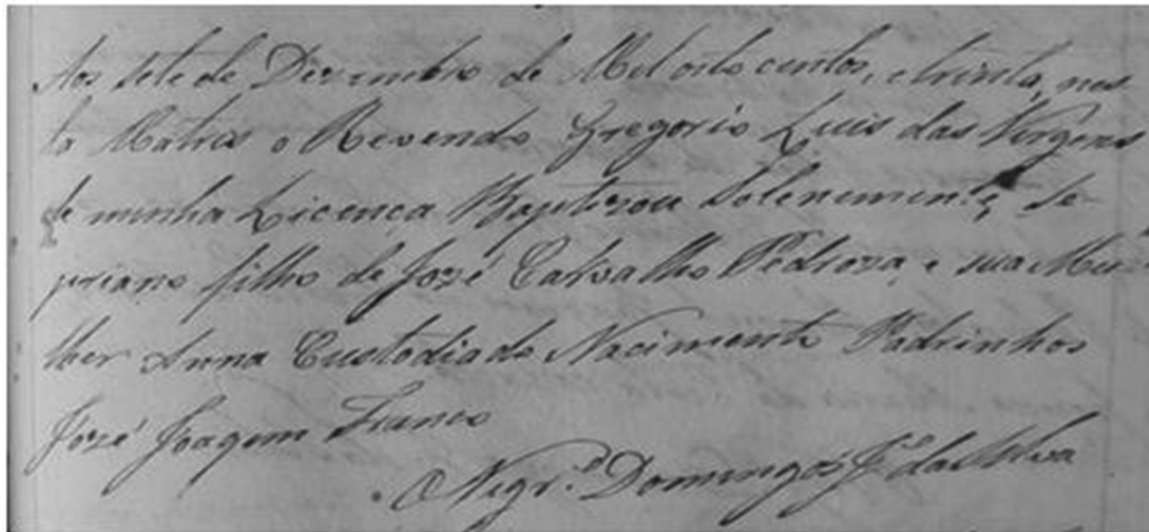 Aos sete de Dezembro de Mil oito centos, e trinta, nes
ta Matris o Revendo Gregorio Luis das Virgens
de minha Licença Baptizou Solenemente, Se
priano filho de José Carvalho Pedroza, e sua Mu
lher Anna Custodia do Nacimento Padrinhos
José Joaquim Franco
O Vigr.º Domingos J.e da Silva